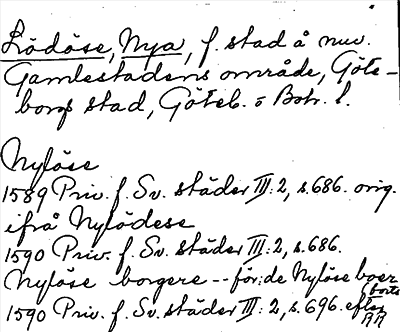 Lödöse, Nya, f. stad å nuv.
Gamlestadens område, Göte-
borgs stad, Göteb. o Boh. l.
Nylöse
1589 Priv. f. Sv. städer III: 2, s. 686. orig.
ifrå Nylödese
1590 Priv. f. Sv. städer III: 2, s. 686.
Nylöse borgere -- för:de Nylöse boer
1590 Priv. f. Sv. städer III: 2, s. 696. efter